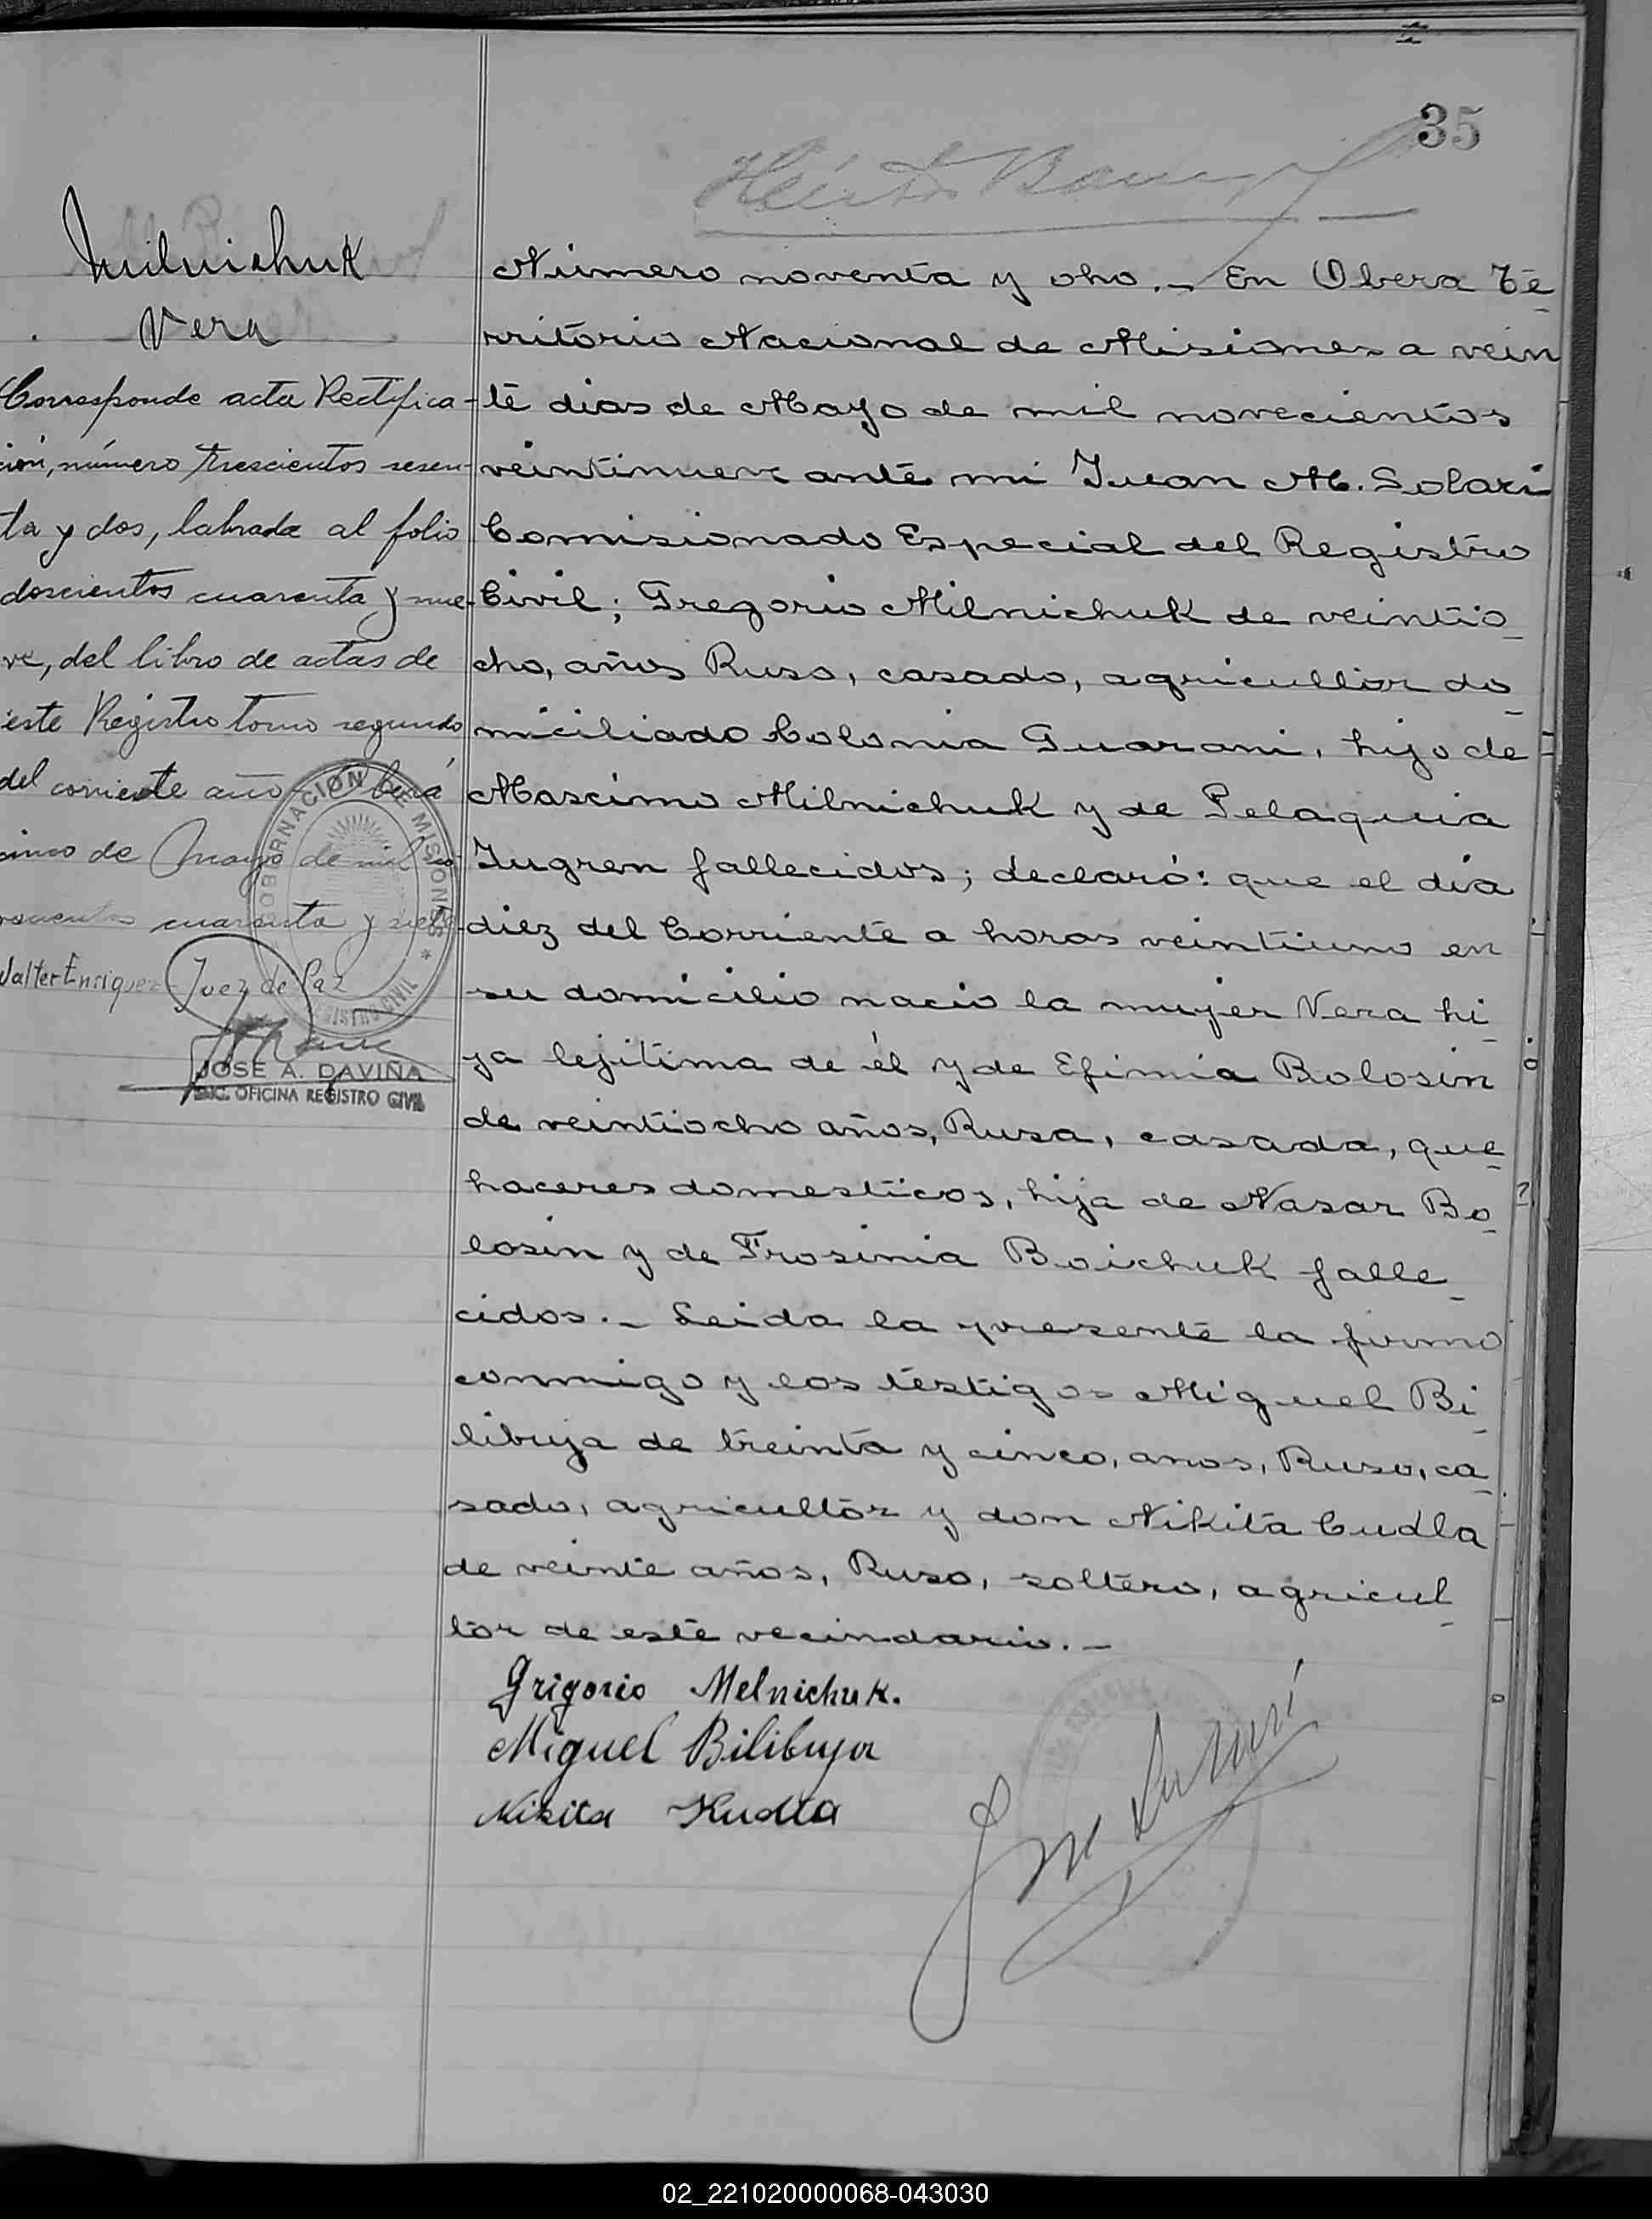 35
Milnichuk
Vera
Corresponde acta Rectifica-
ción, número trescientos sesen-
ta y dos, labrada al folio
doscientos cuarenta y nue-
ve, del libro de actas de
este Registro tomo segundo
del corriente año
cinco de Mayo de mil no-
vecientos cuarenta y siete
Walter Enriquez Juez de Paz
GOBERNACIÓN DE MISIONES
REGISTRO CIVIL
JOSE A. DAVIÑA
ENC. OFICINA REGISTRO CIVIL
Número noventa y oho._ En Obera Te_
rritorio Nacional de Misiones a vein
te dias de Mayo de mil novecientos
veintinueve ante mi Juan M. Solari
Comisionado Especial del Registro
Civil; Gregorio Milnichuk de veintio_
cho, años Ruso, casado, agricultor do_
miciliado Colonia Guarani, hijo de
Mascimo Milnichuk y de Pelaquia
Jugren fallecidos; declaró: que el dia
diez del Corriente a horas veintiuno en
su domicilio nacio la mujer Vera hi_
ja lejitima de él y de Efimia Bolosin
de veintiocho años, Rusa, casada, que_
haceres domesticos, hija de Nasar Bo_
losin y de Frosinia Boichuk falle_
cidos._ Leida la presente la firmo
conmigo y los testigos Miguel Bi_
libuja de treinta y cinco, anos, Ruso, ca_
sado, agricultor y don Nikita Cudla
de veinte años, Ruso, soltero, agricul_
tor de este vecindario._
Grigorio Melnichuk.
Miguel Bilibuja
Nikita Kudla
02_221020000068-043030